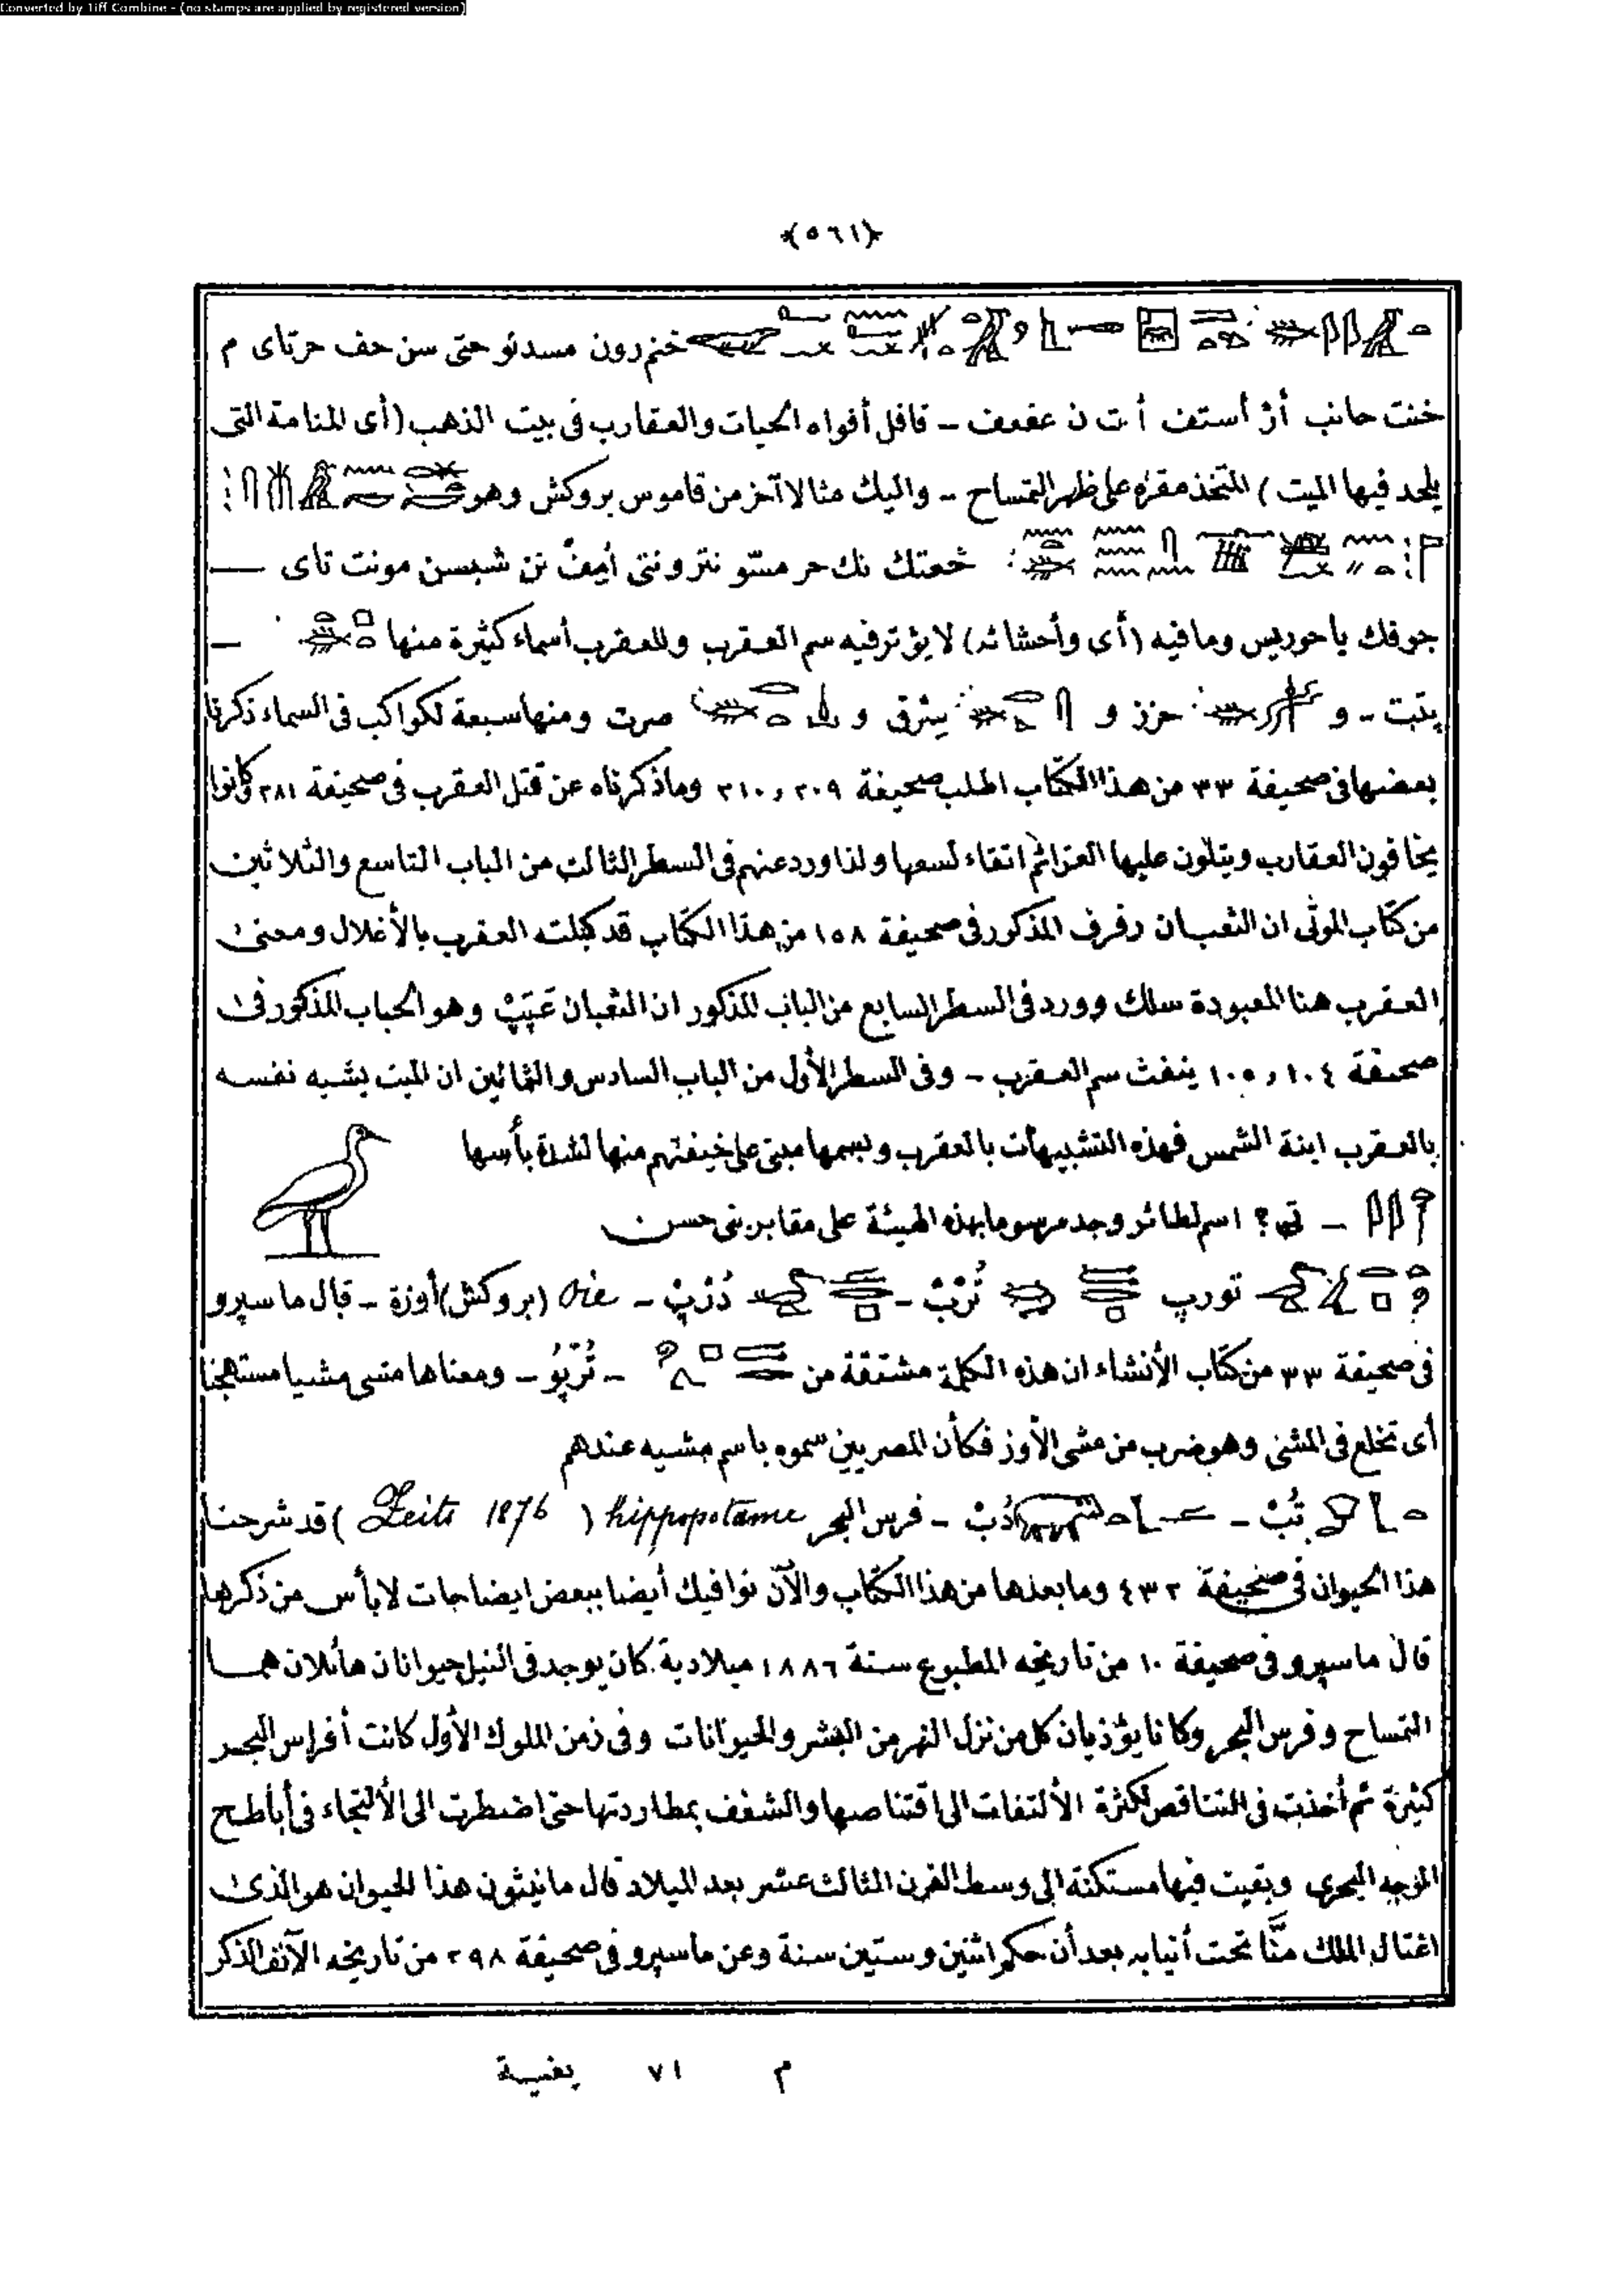 Converted by Tiff Combine - (no stamps are applied by registered version)
﴿٥٦١﴾
خنم رون مسدئو حتى سن حف حرتاى م
خنت حانب أز أستف أ ت ن عفعف - قافل أفواه الحيات والعقارب فى بيت الذهب (أى المنامة التى
يلحد فيها الميت) المتخذ مقره على ظهر التمساح - واليك مثالا آخر من قاموس بروكش وهو
نك حر مسّو نترو نتى أمفّ نن شبسن مونت تاى —
جوفك ياحوريس وما فيه (أى وأحشائه) لا يؤثر فيه سم العقرب وللعقرب أسماء كثيرة منها —
- و حزز و و صرت ومنها سبعة لكواكب فى السماء ذكرنا
بعضها فى صحيفة ٣٣ من هذا الكتاب اطلب صحيفة ٢٠٩ و ٢١٠ وما ذكرناه عن قتل العقرب فى صحيفة ٢٨١ وكانوا
يخافون العقارب ويتلون عليها العزائم اتقاء لسعها ولذا ورد عنهم فى السطر الثالث من الباب التاسع والثلاثين
من كتاب الموتى ان الثعبان رفرف المذكور فى صحيفة ١٥٨ من هذا الكتاب قد كبلته العقرب بالأغلال ومعنى
العقرب هنا المعبودة سلك وورد فى السطر السابع من الباب المذكور ان الثعبان عَبَپْ وهو الحباب المذكور فى
صحيفة ١٠٤ و ١٠٥ ينفث سم العقرب - وفى السطر الأول من الباب السادس والثمانين ان الميت يشبه نفسه
بالعقرب ابنة الشمس فهذه التشبيهات بالعقرب وبسمها مبنى على خيفتهم منها لشدة بأسها
- تى؟ اسم لطائر وجد مرسوما بهذه الهيئة على مقابر بنى حسن
تورپ تُرْبْ - دُرْپْ - oie (بروكش) أوزة - قال ماسپرو
فى صحيفة ٣٣ من كتاب الأنشاء ان هذه الكلمة مشتقة من - تُرُپُو - ومعناها مشى مشيا مستهجنا
أى تخلع فى المشى وهو ضرب من مشى الأوز فكأن المصريين سموه باسم مشيه عندهم
تُبْ - دُبْ - فرس البحر hippopotame ( Zeits 1876 ) قد شرحنا
هذا الحيوان فى صحيفة ٤٣٢ وما بعدها من هذا الكتاب والآن نوافيك أيضا ببعض ايضاحات لا بأس من ذكرها
قال ماسپرو فى صحيفة ١٠ من تاريخه المطبوع سنة ١٨٨٦ ميلادية كان يوجد فى النيل حيوانان هائلان هما
التمساح وفرس البحر وكانا يؤذيان كل من نزل النهر من البشر والحيوانات وفى زمن الملوك الأول كانت أفراس البحر
كثيرة ثم أخذت فى التناقص لكثرة الألتفات الى اقتناصها والشغف بمطاردتها حتى اضطرت الى الألتجاء فى أباطح
الوجه البحرى وبقيت فيها مستكنة الى وسط القرن الثالث عشر بعد الميلاد قال مانيثون هذا الحيوان هو الذى
اغتال الملك منّا تحت أنيابه بعد أن حكم اثنين وستين سنة وعن ماسپرو فى صحيفة ٢٩٨ من تاريخه الآنف الذكر
م ٧١ بغية